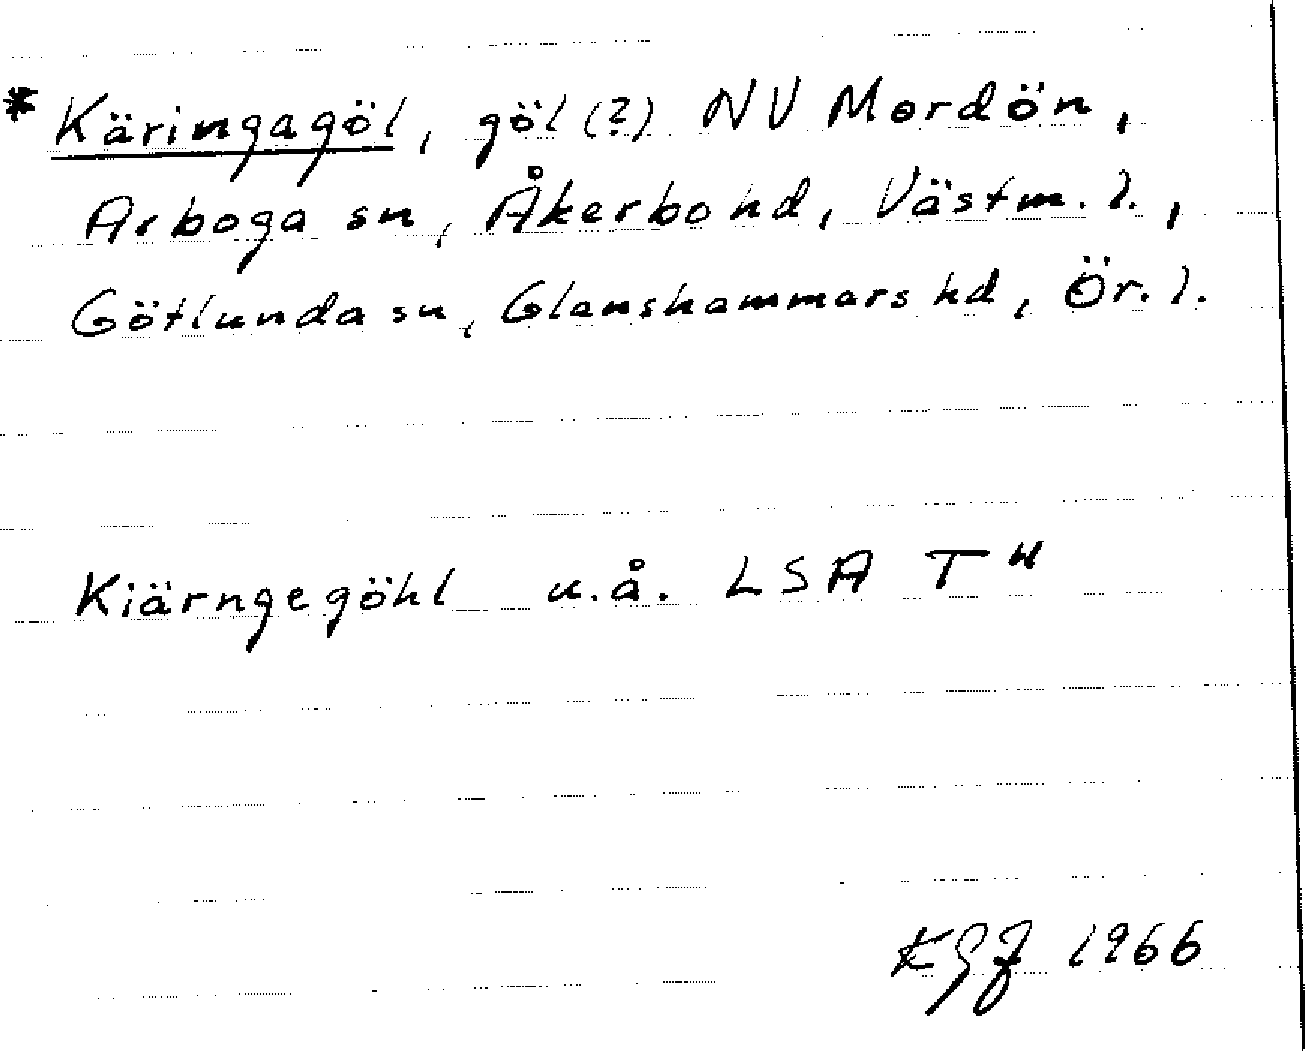 * Käringagöl, göl (?) NV Mordön,
Arboga sn, Åkerbo hd, Västm. l.,
Götlunda sn, Glanshammars hd, Ör. l.
Kiärngegöhl u.å. LSA T"
1966